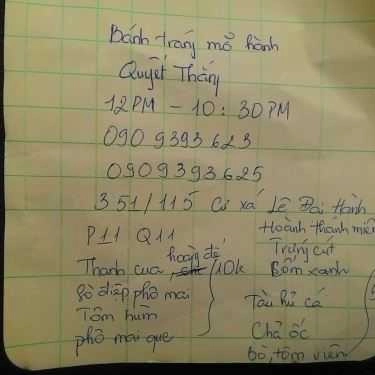 Bánh tráng mỡ hành
Quyết Thắng
12PM - 10:30PM
090 9393 623
0909393625
351/115 Cư xá Lê Đại Hành
P11 Q11
Thanh cua, hoàng đế /10k
sò điệp phô mai
Tôm hùm
phô mai que
Hoành thánh miến
Trứng cút
Bồm xanh
Tàu hủ cá
Chả ốc
bò, tôm viên